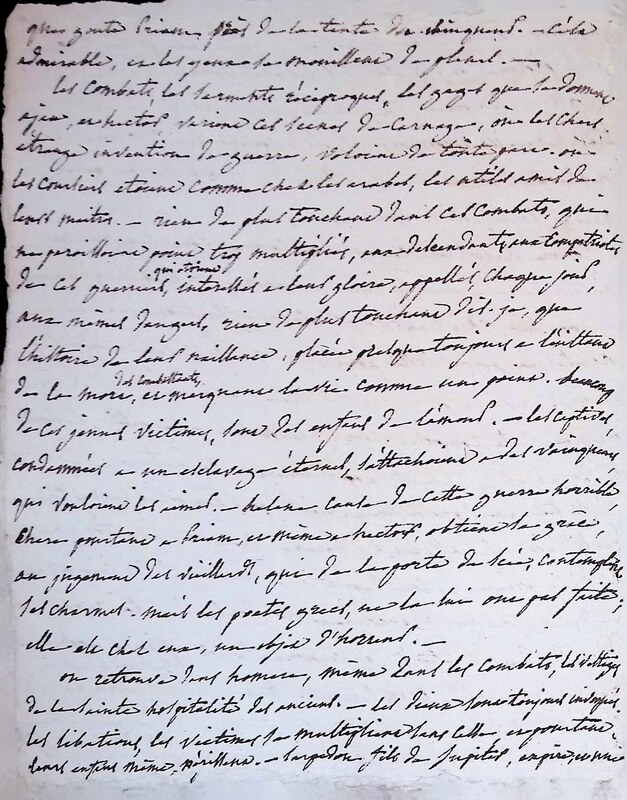 que goute Priam, près de la tente du vainqueur. - cela
admirable, et les yeux se mouillent de pleurs. -
les Combats, les serments réciproques, les gages que se donnent
ajax, et hector, varient ces scenes de Carnage, où les chars
étrange invention de guerre, voloient de toute part. où
les Coursiers étoient comme chez les arabes, les utiles amis de
leurs maitres. - rien de plus touchant dans ces Combats, qui
ne paroissoient point trop multipliés, aux descendants, aux Compatriotes
de ces guerriers, qui étoient interessés a leur gloire, appellés chaque jour,
aux mêmes dangers, rien de plus touchant dis-je, que
l'histoire de leur naissance, placée presque toujours a l'instant
de la mort, des Combattants, et marquant la vie comme un point. beaucoup
de ces jeunes victimes, sont des enfans de l'amour. - les captives,
condamnées a un esclavage éternel, s'attachoient a des vainqueurs,
qui vouloient les aimer. - helene cause de cette guerre horrible,
chere pourtant a Priam, et même a hector, obtient la grâce,
au jugement des vieillards, qui de la porte de Scée, contemplent
ses charmes. mais les poetes grecs, ne la lui ont pas faite;
elle est chez eux, un objet d'horreur. -
on retrouve dans homere, même dans les Combats, les vestiges
de la sainte hospitalité des anciens. - les dieux sont toujours invoqués,
les libations, les victimes se multiplient sans cesse, et pourtant
leurs enfans même, périssent. - Sarpedon fils de Jupiter, expire, et une